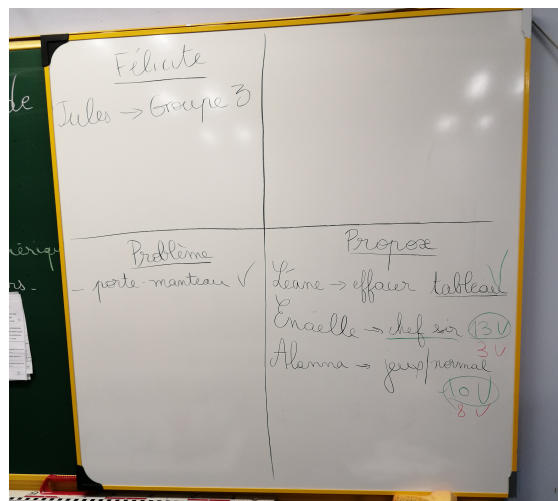 de
Félicite
Jules → Groupe 3
ériqu
rs.
Problème
- porte-manteau V
Propose
Léane → effacer tableau V
Enaëlle → chef sir 13 V
3 V
Alanna → jeux/normal
10 V
8 V